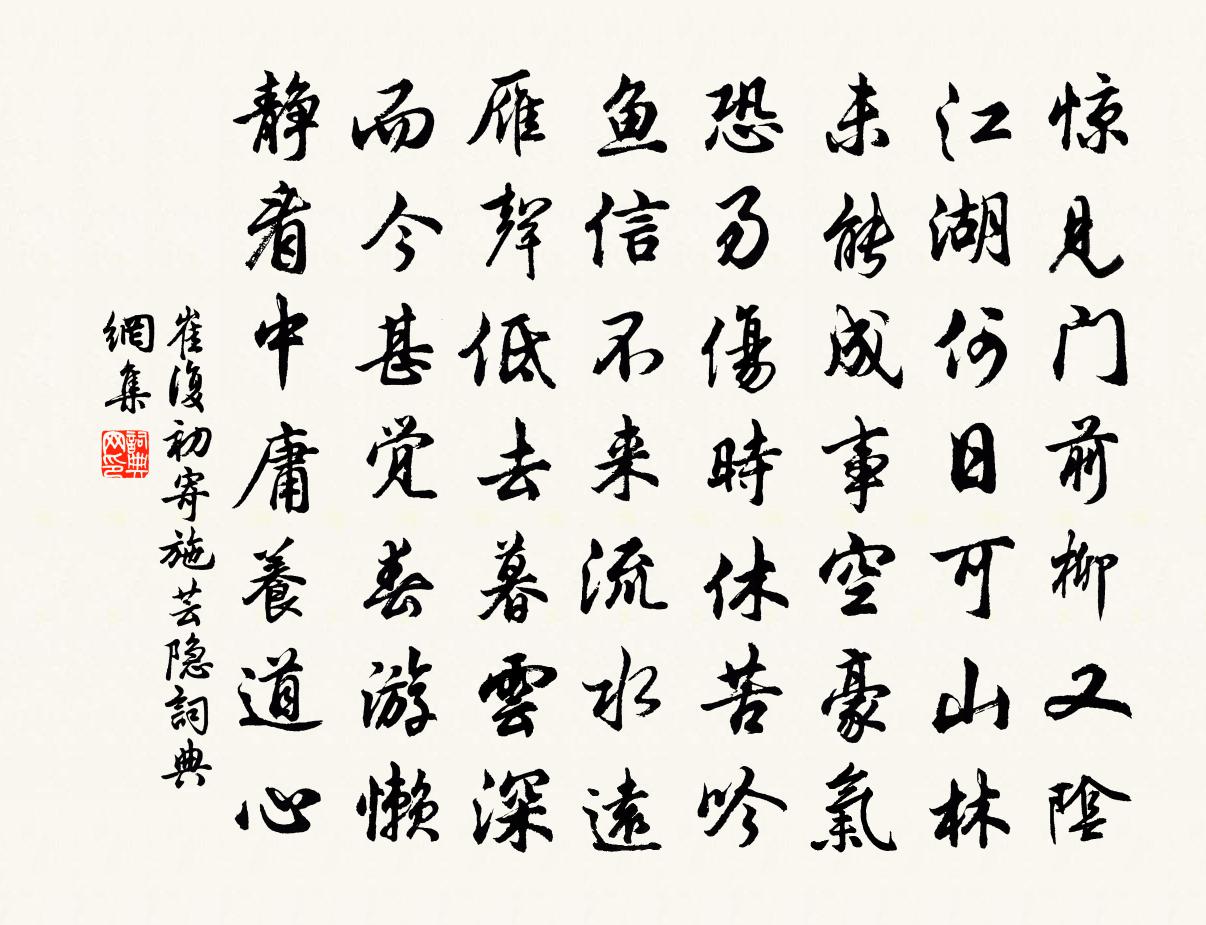 惊见门前柳又阴
江湖何日可山林
未能成事空豪氣
恐易傷時休苦吟
鱼信不来流水遠
雁聲低去暮雲深
而今甚觉春游懒
静看中庸養道心
崔復初寄施芸隐詞典
網集
詞典
网印